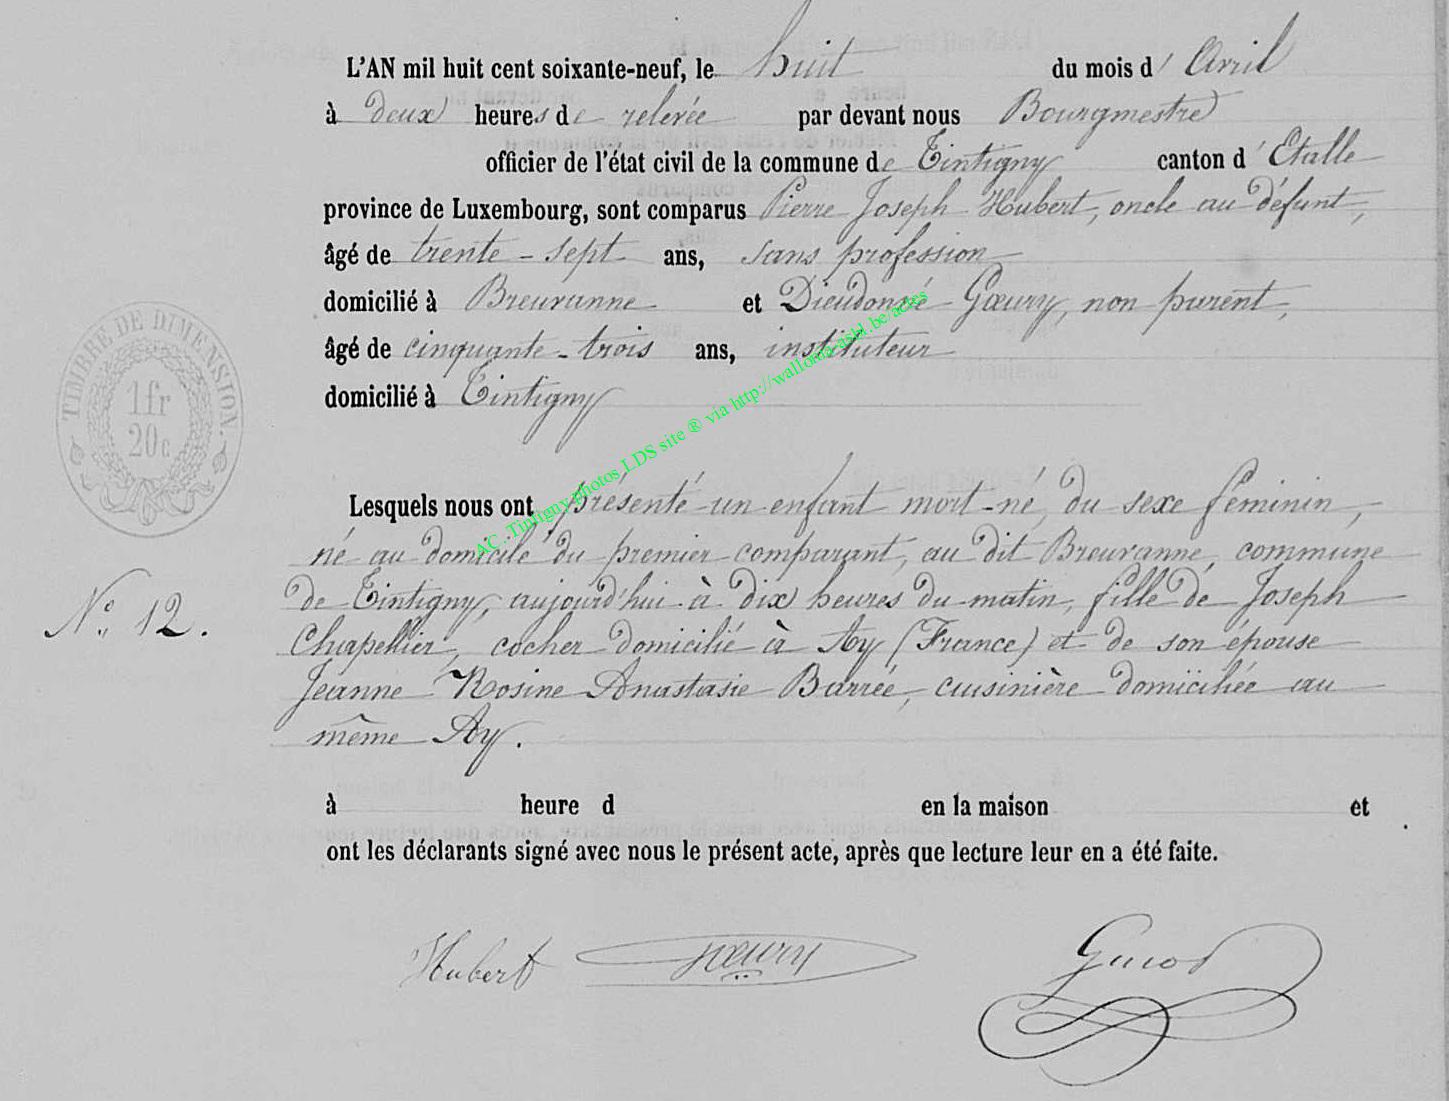 L'AN mil huit cent soixante-neuf, le huit du mois d'Avril
à deux heures de relevée par devant nous Bourgmestre
officier de l'état civil de la commune de Tintigny canton d'Etalle
province de Luxembourg, sont comparus Pierre Joseph Hubert, oncle au défunt,
âgé de trente-sept ans, sans profession
domicilié à Breuvanne et Dieudonné Gœury, non parent,
âgé de cinquante-trois ans, instituteur
domicilié à Tintigny
TIMBRE DE DIMENSION.
1fr
20c
AC. Tintigny photos LDS site ® via http://wallonia-asbl.be/actes
Lesquels nous ont présenté un enfant mort-né, du sexe féminin,
né au domicile du premier comparant, au dit Breuvanne, commune
N° 12.
de Tintigny, aujourd'hui à dix heures du matin, fille de Joseph
Chapellier, cocher domicilié à Ay (France) et de son épouse
Jeanne Rosine Anastasie Barrée, cuisinière domiciliée au
même Ay.
à heure d en la maison et
ont les déclarants signé avec nous le présent acte, après que lecture leur en a été faite.
Hubert Gœury